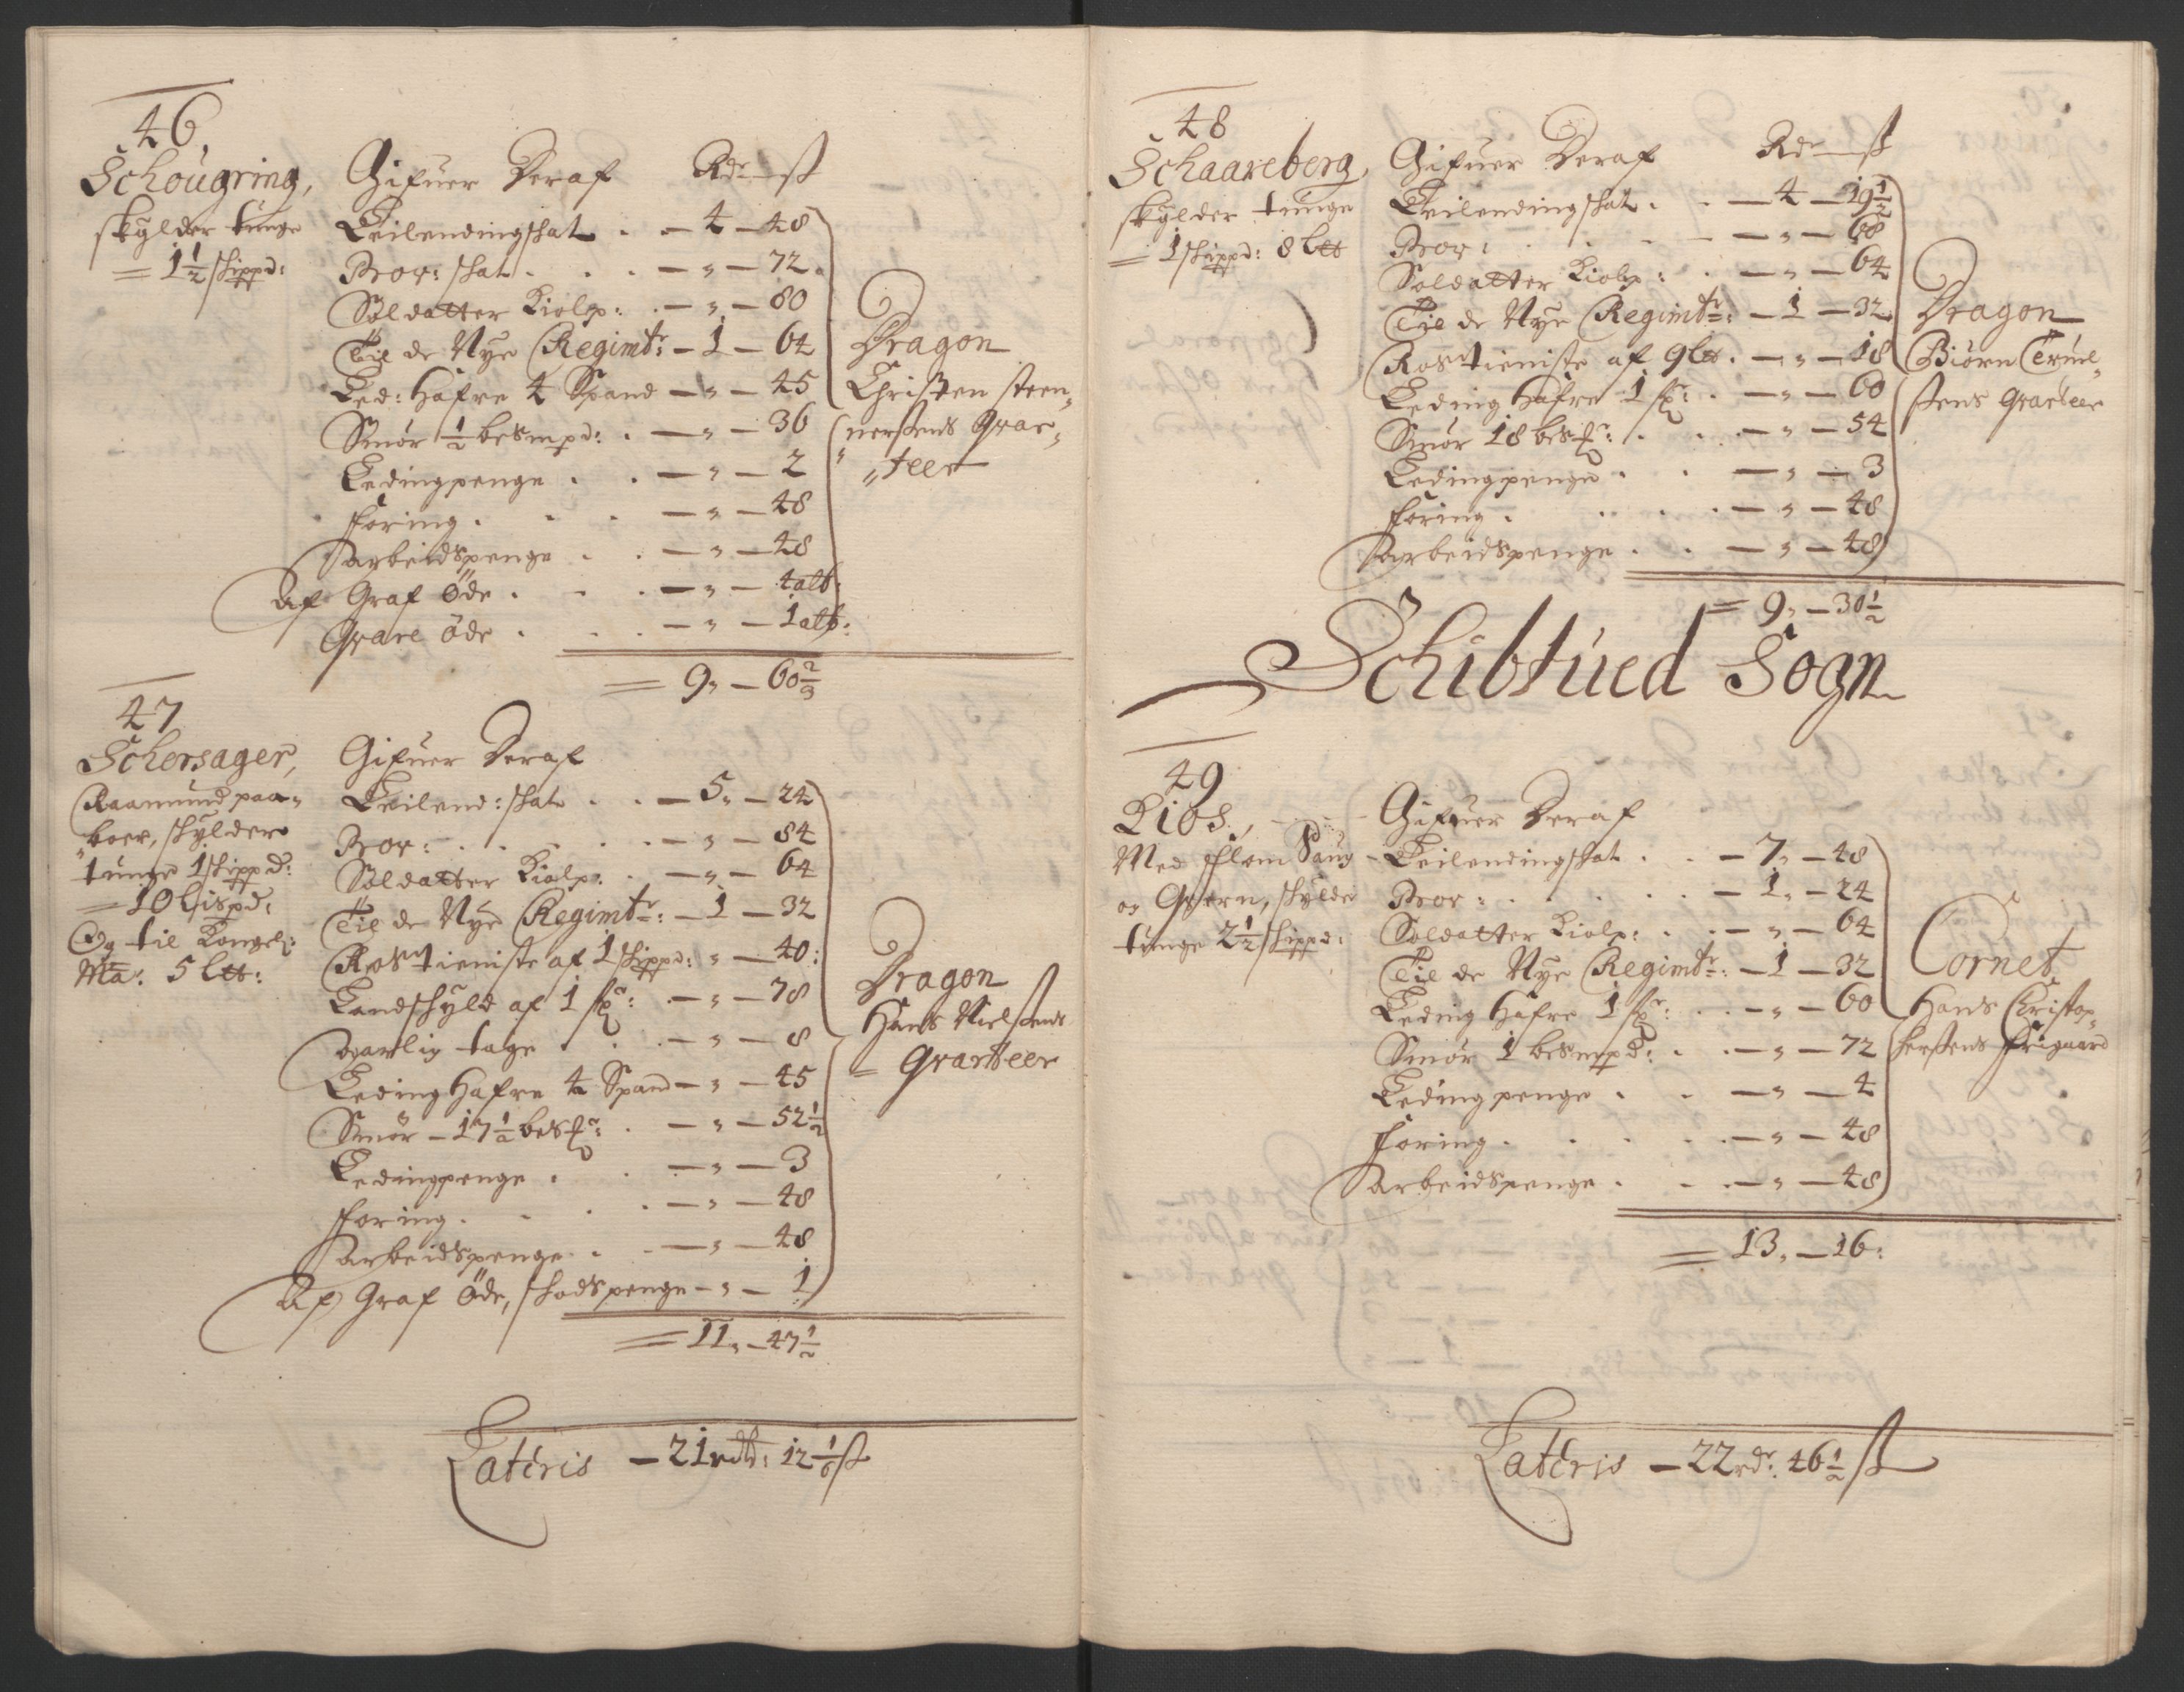 46.
Schougring,
skylder tunge
= 1 1/2 skippd:
Gifuer Deraf Rdr ß
Leilendingskat . . – 4 – 48
Pror: skat . . . – " – 72.
Soldatter Kiolp: . – " – 80
Til de Nye Regimtr: – 1 – 64
Led: Hafre 4 Spand – " – 45
Smør 1/2 besmpd: . – " – 36
Ledingpenge . . – " – 2
Foring . . . – " – 48
Arbeidspenge . . – " – 48
Af Graf Öde . . . – " – 4 alb:
Qvare öde . . . – " – 1 alb:
= 9" – 60 2/3
Dragon
Christen Steen"
nersens Qvar"
"teer
47
Schersager,
Raamund paa"
"boer, skylder
tunge 1 skippd:
= 10 Lispd:
Og til Kongel:
Ma: 5 Ltt:
Gifuer Deraf
Leilend: skat . . – 5" – 24
Pror: . . . . . – " – 84
Soldatter Kiolp: . – " – 64
Til de Nye Regimtr: – 1 – 32
Rostieniste af 1 skippd: " – 40:
Landskyld af 1 – " – 78
Aarlig tage . . . – " – 8
Leding Hafre 4 Spand – " – 45
Smør – 17 1/2 bes . – " – 52 1/2
Ledingpenge . . – " – 3
Foring . . . . – " – 48
Arbeidspenge . . – " – 48
Af Graf Öde, skodspenge – " – 1
= 11" – 47 1/2
Dragon
Hans Nielsens
= Qvarteer
Lateris – 21 rdlr: 12 1/6 ß
48
Schaareberg,
skylder tunge
= 1 skippd: 8 Ltt
Gifuer Deraf Rdr ß
Leilendingskat . . – 4 – 19 1/2
Pror: . . . . – " – 68
Soldatter Kiolp: . – " – 64
Til de Nye Regimtr: – 1 – 32
Rostieniste af 9 Ltt. – " – 18
Leding Hafre 1 . – " – 60
Smør 18 bes . . – " – 54
Ledingpenge . . – " – 3
Foring . . . . – " – 48
Arbeidspenge . . – " – 48
= 9" – 30 1/2
Dragon
Biørn Truel"
sens Qvarteer
Schibtued Sogn
49
Kibs,
Med Flom Saug
og Qvern, skylder
tunge 2 1/2 skippd:
Gifuer Deraf
Leilendingskat . . – 7" – 48
Pror: . . . . . – 1" – 24
Soldatter Kiolp: . . – " – 64
Til de Nye Regimtr: – 1 – 32
Leding Hafre 1 . . – " – 60
Smør 1 besmpd: . . – " – 72
Ledingpenge . . – " – 4
Foring . . . . – " – 48
Arbeidspenge . . . – " – 48
= 13" – 16:
Cornet
Hans Cristop"
hersens Frigaard
Lateris – 22 rdr: 46 1/2 ß